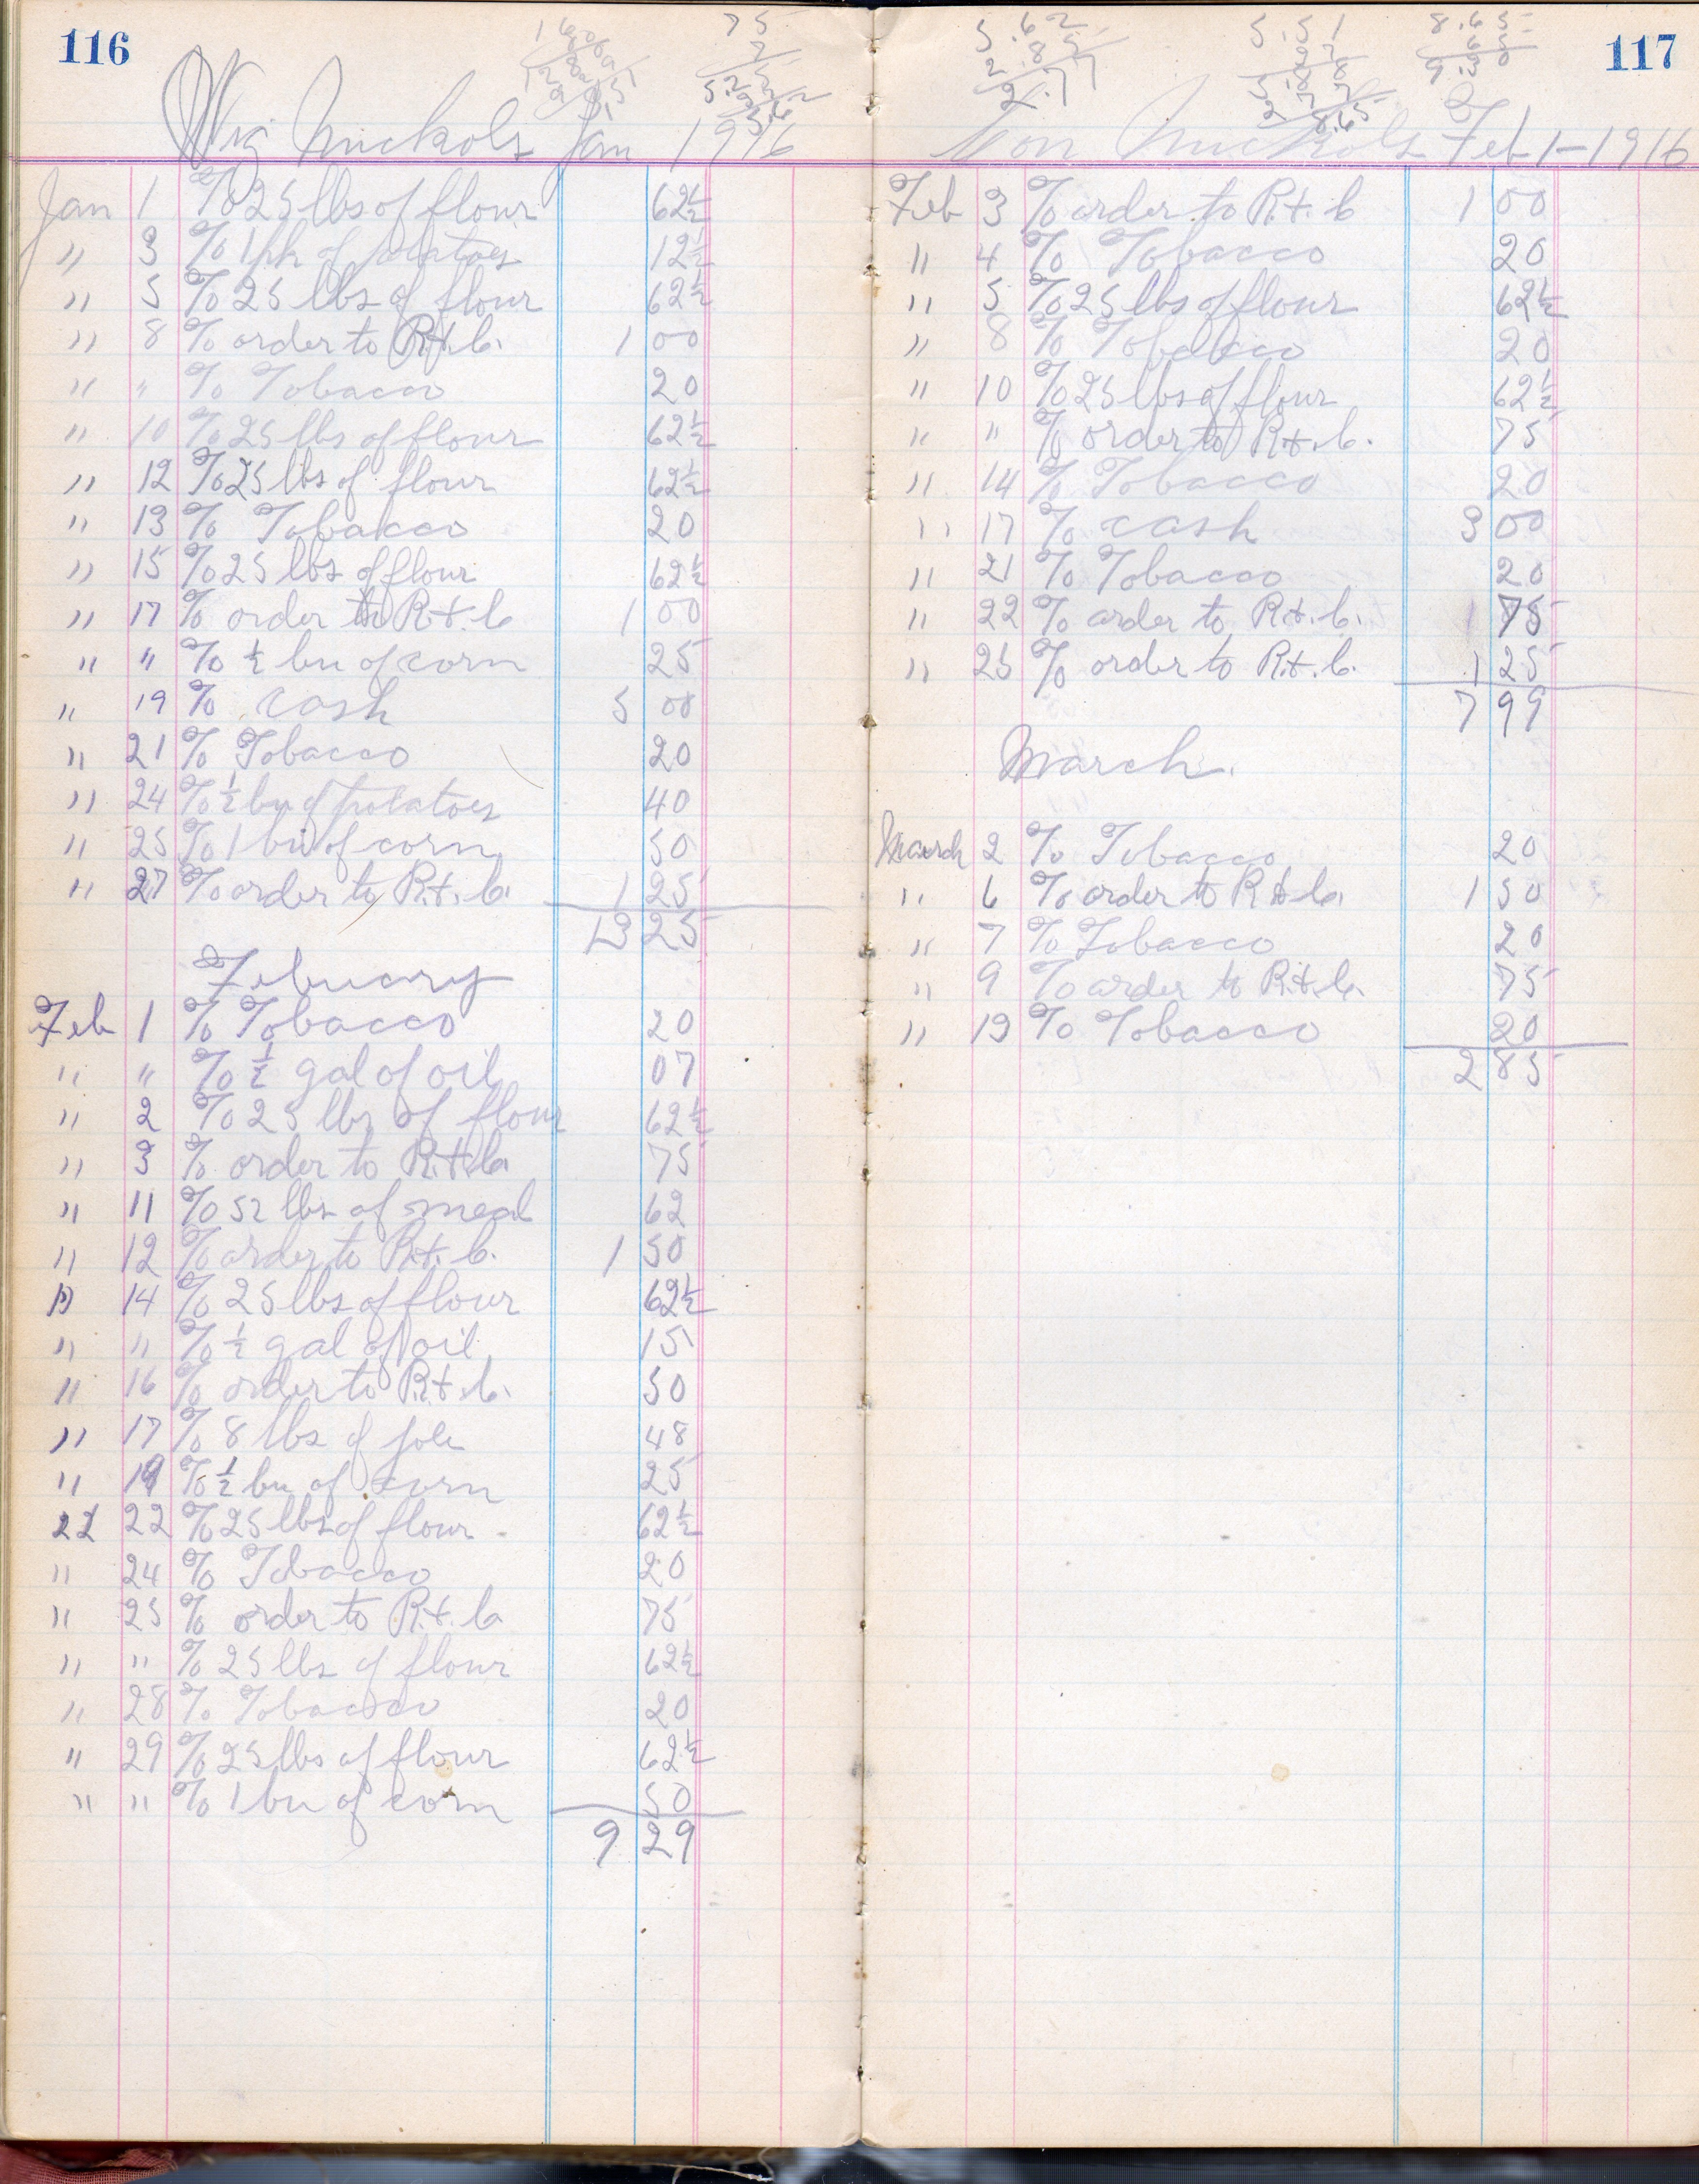 116
Nickols Jan 1916
Jan 1 % 25 lbs of flour 62½
" 3 % 1 pk of potatoes 12½
" 5 % 25 lbs of flour 62½
" 8 % order to R.t.b. 1 00
" " % Tobacco 20
" 10 % 25 lbs of flour 62½
" 12 % 25 lbs of flour 62½
" 13 % Tobacco 20
" 15 % 25 lbs of flour 62½
" 17 % order to R.t.b 1 00
" " % ½ bu of corn 25
" 19 % cash 5 00
" 21 % Tobacco 20
" 24 % ½ bu of potatoes 40
" 25 % 1 bu of corn 50
" 27 % order to R.t.b. 1 25
13 25
Febuary
Feb 1 % Tobacco 20
" " % ½ gal of oil 07
" 2 % 25 lbs of flour 62½
" 3 % order to R.t.b. 75
" 11 % 52 lbs of meal 62
" 12 % order to R.t.b. 1 50
" 14 % 25 lbs of flour 62½
" " % ½ gal of oil 15
" 16 % order to R.t.b. 50
" 17 % 8 lbs of jole 48
" 19 % ½ bu of corn 25
22 22 % 25 lbs of flour 62½
" 24 % Tobacco 20
" 25 % order to R.t.b 75
" " % 25 lbs of flour 62½
" 28 % Tobacco 20
" 29 % 25 lbs of flour 62½
" " % 1 bu of corn 50
9 29
117
Nickols Feb 1-1916
Feb 3 % order to R.t.b 1 00
" 4 % Tobacco 20
" 5 % 25 lbs of flour 62½
" 8 % Tobacco 20
" 10 % 25 lbs of flour 62½
" " % order to R.t.b. 75
" 14 % Tobacco 20
" 17 % cash 3 00
" 21 % Tobacco 20
" 22 % order to R.t.b. 75
" 25 % order to R.t.b. 1 25
7 99
March.
March 2 % Tobacco 20
" 6 % order to R.t.b. 1 50
" 7 % Tobacco 20
" 9 % order to R.t.b. 75
" 19 % Tobacco 20
2 85